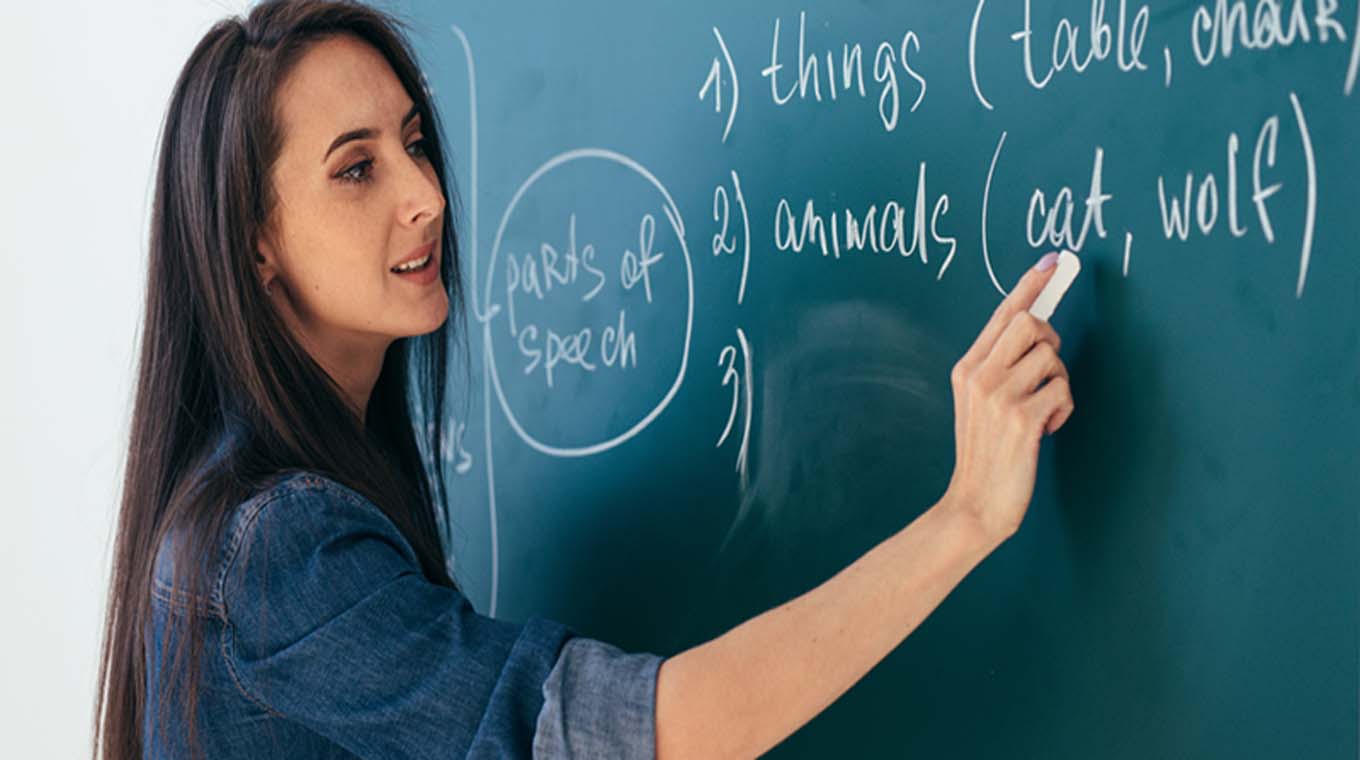 parts of
speech
1) things (table, chair)
2) animals (cat, wolf)
3)